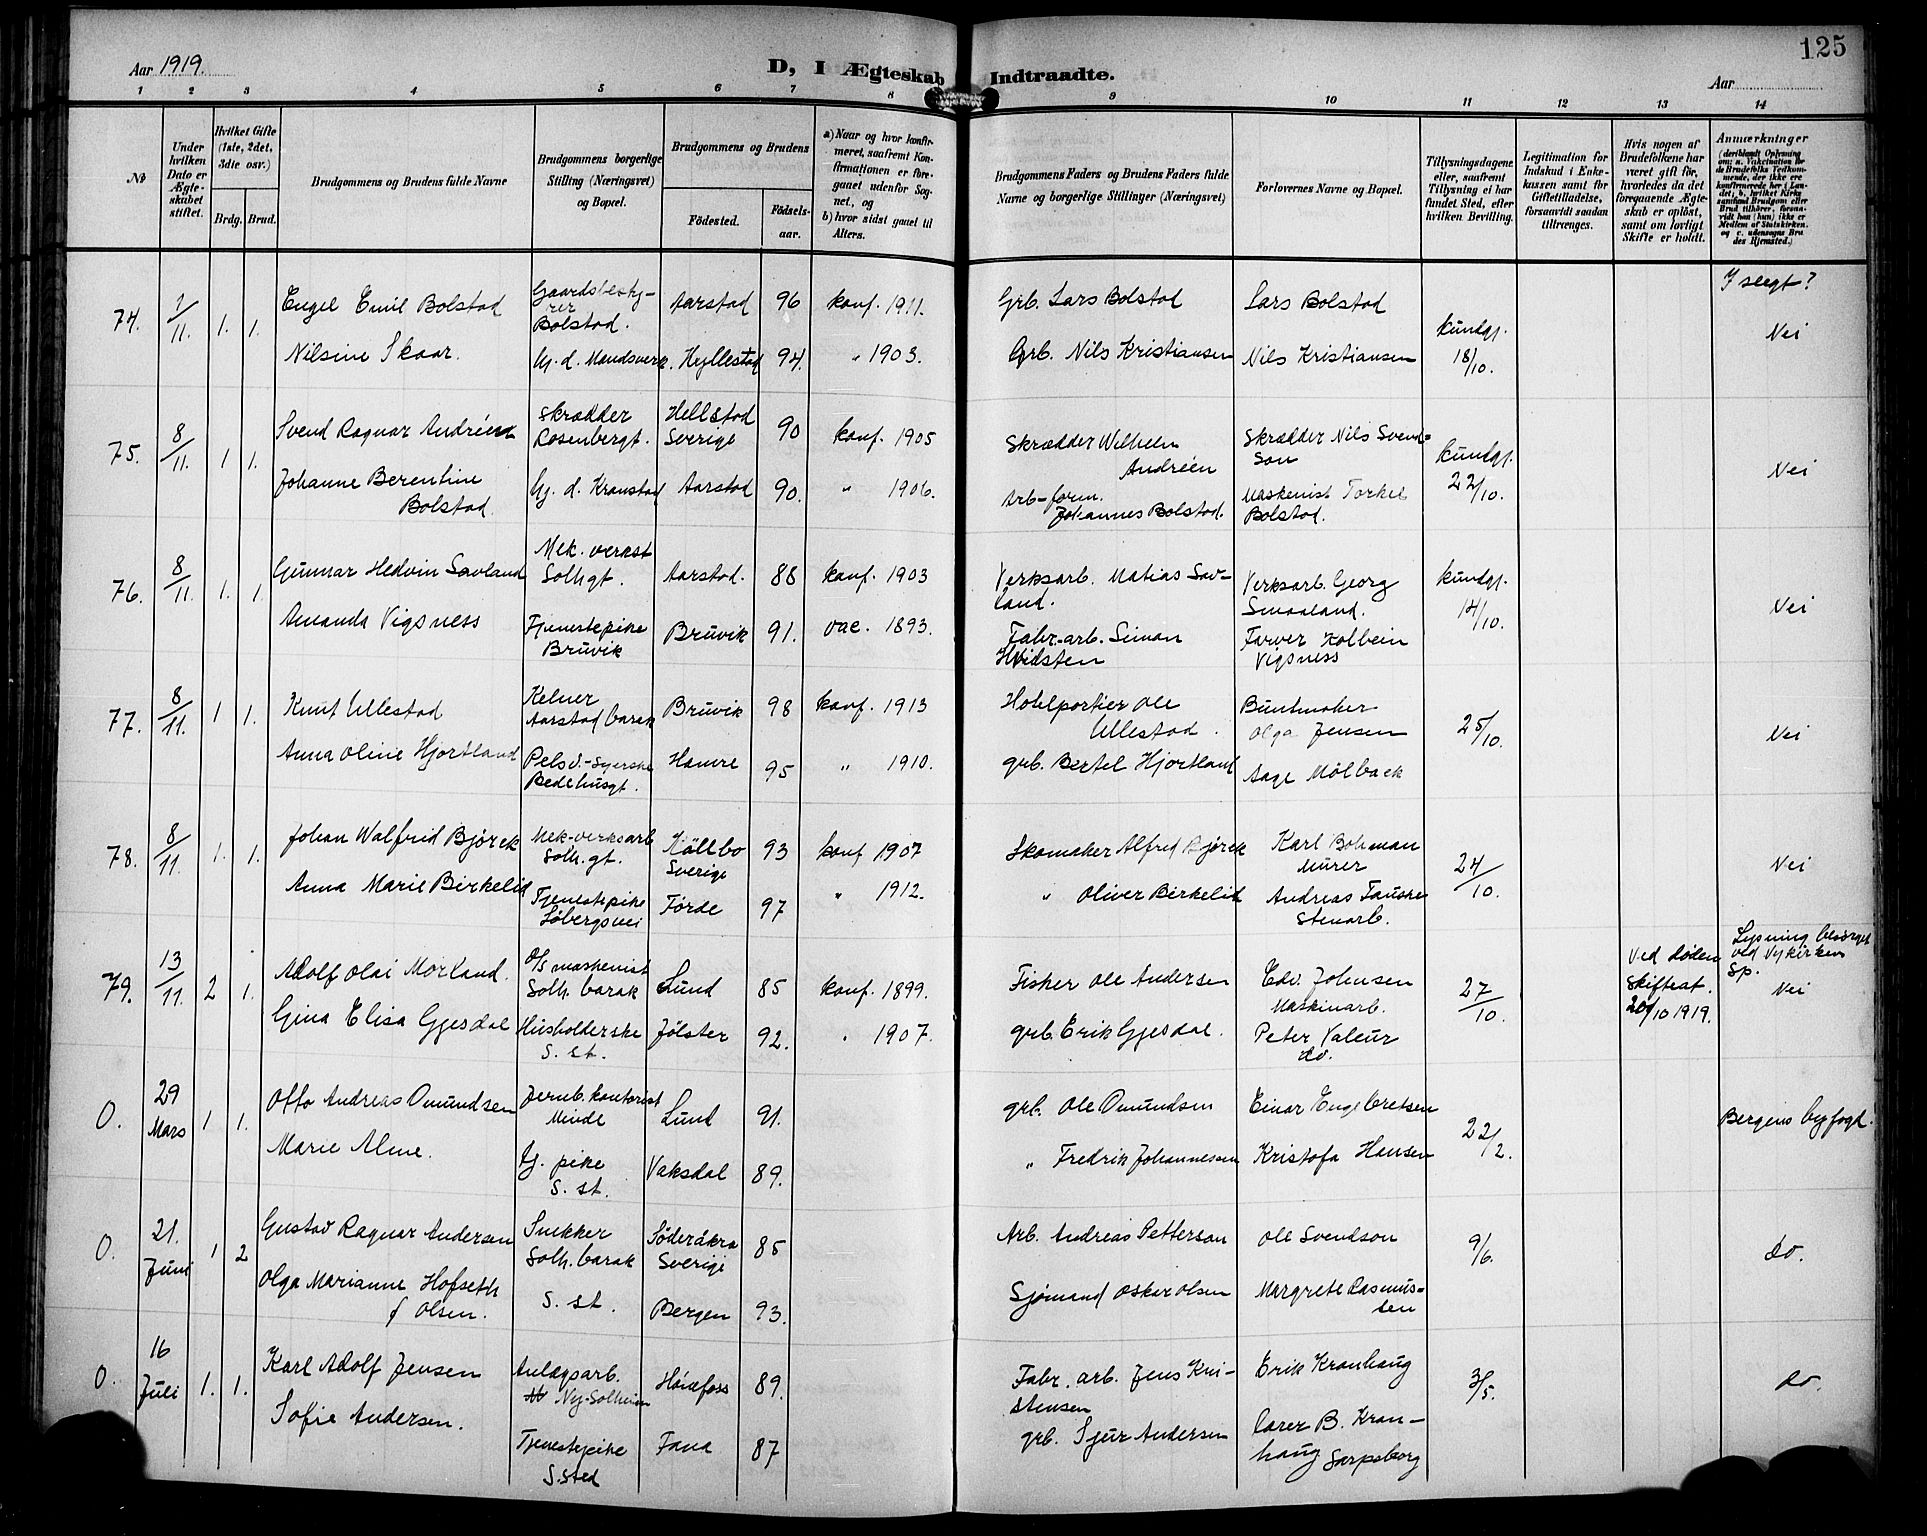 Aar 1919.
D, I Ægteskab Indtraadte.
125
Aar
1 2 3 4 5 6 7 8 9 10 11 12 13 14
No
Under hvilken Dato er Ægteskabet stiftet.
Hvilket Gifte (1ste, 2det, 3die osv.)
Brdg. Brud.
Brudgommens og Brudens fulde Navne
Brudgommens borgerlige Stilling (Næringsvei) og Bopæl.
Brudgommens og Brudens
Fødested.
Fødselsaar.
a) Naar og hvor konfirmeret, saafremt Konfirmationen er foregaaet udenfor Sognet, og
b) hvor sidst gaaet til Alters.
Brudgommens Faders og Brudens Faders fulde Navne og borgerlige Stillinger (Næringsvei)
Forlovernes Navne og Bopæl.
Tillysningsdagene eller, saafremt Tillysning ei har fundet Sted, efter hvilken Bevilling.
Legitimation for Indskud i Enkekassen samt for Giftetilladelse, forsaavidt saadan tiltrænges.
Hvis nogen af Brudefolkene har været gift før, hvorledes da det foregaaende Ægteskab er opløst, samt om lovligt Skifte er holdt.
Anmærkninger
(deriblandt Oplysning om: a. Vakcination for de Brudefolks Vedkommende, der ikke ere konfirmerede her i Landet; b. hvilket Kirkesamfund Brudgom eller Brud tilhører, forsaavidt han (hun) ikke er Medlem af Statskirken. og c. udensogns Brudes Hjemsted.)
I slegt?
74. 1/11. 1. 1. Engel Emil Bolstad Gaardsbesty-
rer
Bolstad. Aarstad 96 konf. 1911. Grb. Lars Bolstad Lars Bolstad kundgj. 18/10. Nei
Nilsine Skaar. Hj. d. Mandsverk. Hyllestad 94. " 1903. Grb. Nils Kristiansen Nils Kristiansen
75. 8/11. 1 1. Svend Ragnar Andréen Skrædder
Rosenbergt. Hellstad
Sverige 90 konf. 1905 Skrædder Wilhelm
Andréen Skrædder Nils Svend-
son kundgj. 22/10. Nei
Johanne Berentine
Bolstad. Hj. d. Kronstad Aarstad 90. " 1906. Arb-form.
Johannes Bolstad. Maskenist Torkel
Bolstad.
76. 8/11. 1. 1. Gunnar Hedvin Savland Mek. verkst
Solhgt. Aarstad. 88 konf. 1903 Verksarb. Matias Sav-
land. Verksarb. Georg
Smaaland. kundgj. 14/10. Nei
Amanda Vigsness Tjenestepike
Bruvik Bruvik 91. vac. 1893. Fabr.-arb. Simon
Hvidsten Farver Kolbein
Vigsness
77. 8/11. 1 1. Knut Ullestad Kelner
Aarstad barak Bruvik 98 konf. 1913 Hotelportier Ole
Ullestad. Buntmaker
Olga Jensen 25/10. Nei
Anna Oline Hjortland Pelsv.-syerske
Bedehusgt. Hamre 95 " 1910. grb. Bertel Hjortland Aage Mölback
78. 8/11. 1. 1. Johan Walfrid Bjørck Mek-verksarb
Solh.gt. Källbo
Sverige 93 konf 1907 Skomaker Alfred Bjørck Karl Bohman
Murer 24/10. Nei
Anna Marie Birkelid Tjenestepike
Løbergsvei Förde 97 " 1912. " Oliver Birkelid Andreas Tauske
Stenarb.
79. 13/11. 2 1. Adolf Olai Mørland. O/s maskenist
Solh. barak Lund 85 konf. 1899. Fisker Ole Andersen Edv. Johnsen
Maskinarb. 27/10. Ved døden
Skifteat.
20/10 1919. Lysning besørget
ved Nykirken
Sp.
Nei
Gina Elisa Gjesdal Husholderske
S. st. Jölster 92. " 1907. grb. Erik Gjesdal. Peter Valeur
do.
0. 29 Mars 1 1. Otto Andreas Omundsen Jernb. kontorist
Minde Lund 91. grb. Ole Omundsen Einar Engebretsen 22/2. Bergens byfogd.
Marie Alme. Hj. pike
S. st. Vaksdal 89. " Fredrik Johannessen Kristofa Hansen
0. 21. Juni 1 2 Gustav Ragnar Andersen Snekker
Solh. barak Söderåkra
Sverige 85 Arb. Andreas Petterson Ole Svendson 9/6. do.
Olga Marianne Hofseth
f Olsen. S. st. Bergen 93. Sjømand Oskar Olsen Margrete Rasmus-
sen
0. 16 Juli 1. 1. Karl Adolf Jensen Anlægsarb.
Ny-Solheim Hönefoss 89. Fabr. arb. Jens Kri-
stensen Erik Kronhaug 3/5. do.
Sofie Andersen. Tjenestepike
S. sted Fana 87 grb. Sjur Andersen Carer B. Kron-
haug Sarpsborg